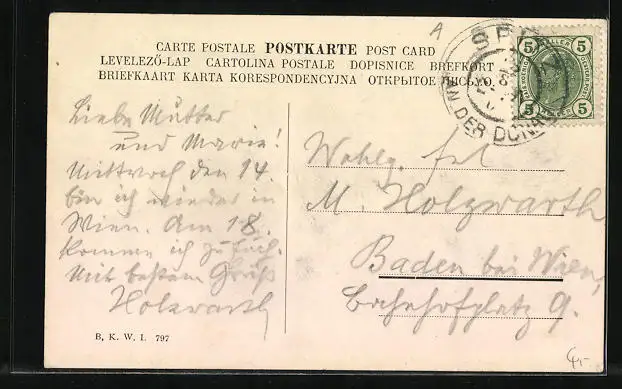 A
CARTE POSTALE POSTKARTE POST CARD
LEVELEZŐ-LAP CARTOLINA POSTALE DOPISNICE BREFKORT
BRIEFKAART KARTA KORESPONDENCYJNA ОТКРЫТОЕ ПИСЬМО
SPITZ
AN DER DONAU
5 HELLER 5
5 5
Liebe Mutter
und Marie!
Mittwoch den 14.
bin ich wieder in
Wien. Am 18.
komme ich zu Euch.
Mit bestem Gruß
Holzwarth
Wohlg. Frl
M. Holzwarth
Baden bei Wien,
Bahnhofplatz 9.
B. K. W. I. 797